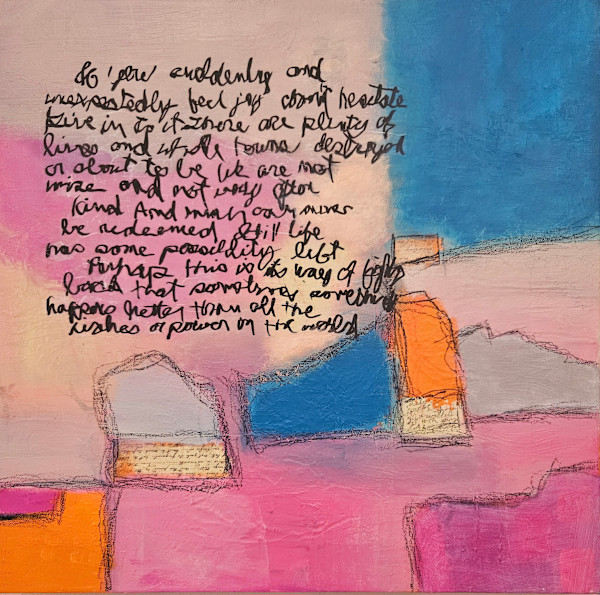 If you suddenly and
unexpectedly feel joy dont hesitate
Give in to it There are plenty of
lives and whole towns destroyed
or about to be We are not
wise and not very often
kind And much can never
be redeemed Still life
has some possibility left
Perhaps this is its way of fighting
back that sometimes something
happens better than all the
riches or power in the world